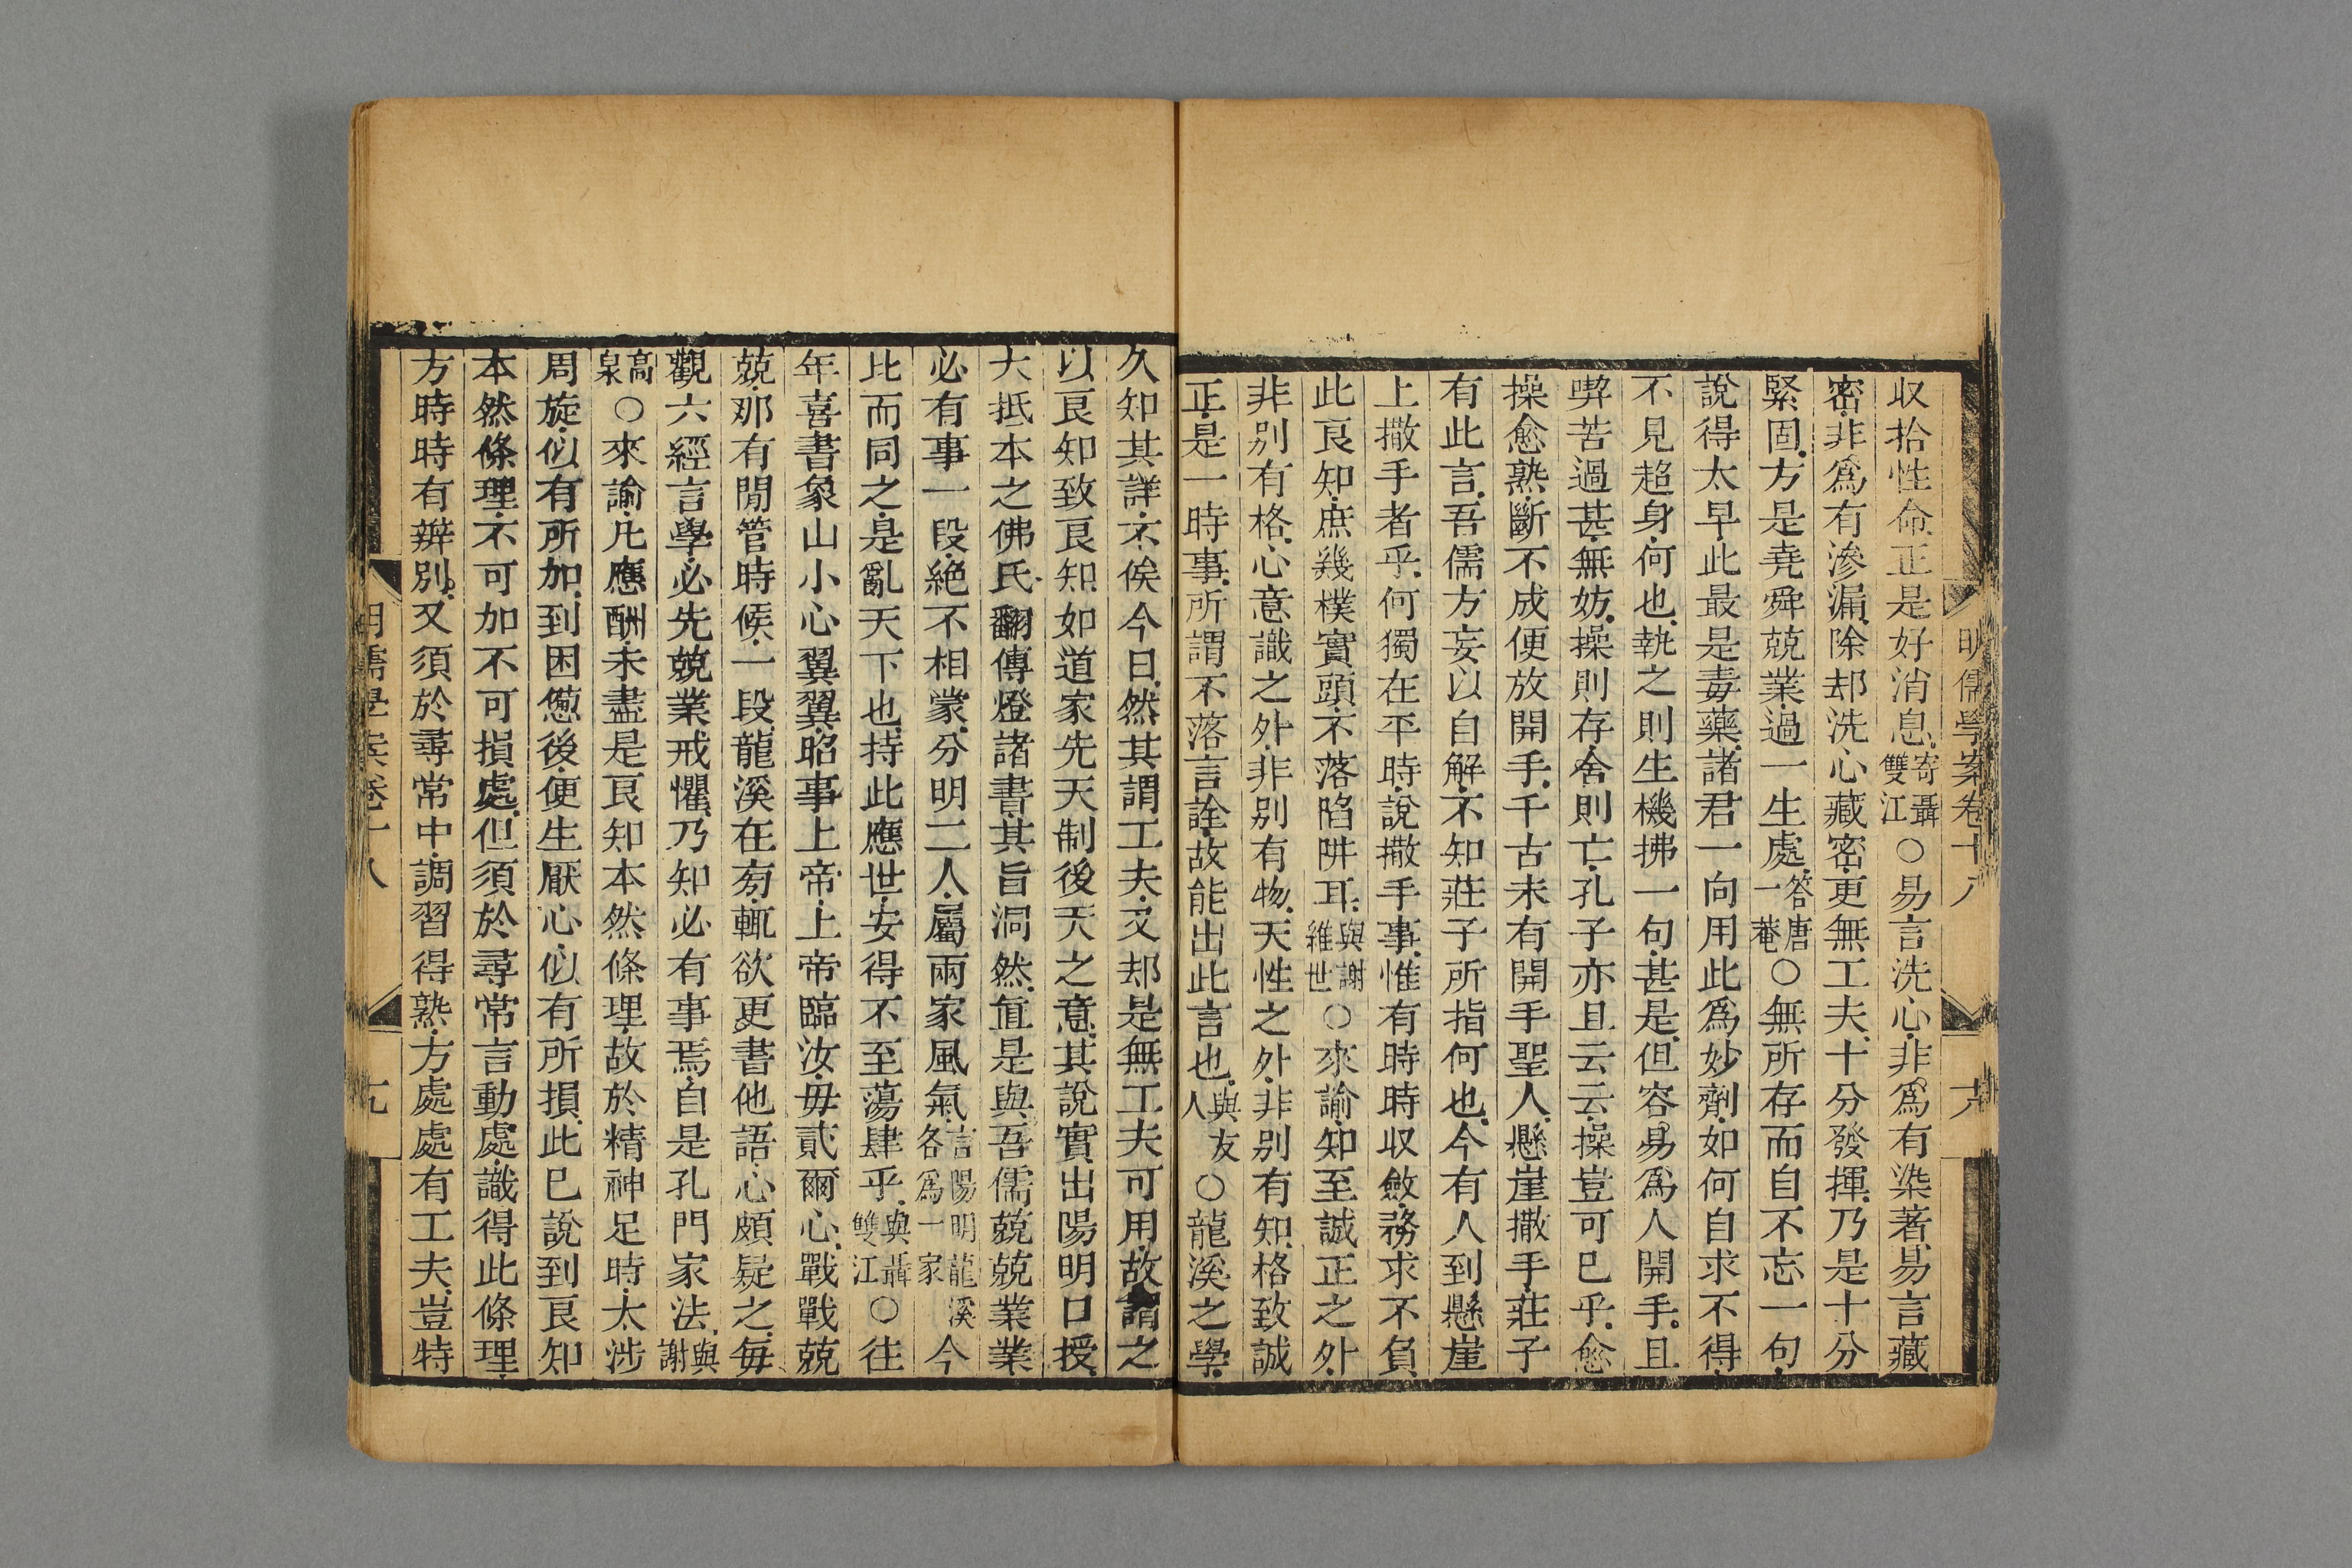 明儒學案卷十八
六
收拾性命正是好消息寄聶雙江○易言洗心非爲有染著易言藏
密非爲有滲漏除却洗心藏密更無工夫十分發揮乃是十分
緊固方是堯舜兢業過一生處答唐一菴○無所存而自不忘一句
說得太早此最是毒藥諸君一向用此爲妙劑如何自求不得
不見超身何也執之則生機拂一句甚是但容易爲人開手且
嘐苦過甚無妨操則存舍則亡孔子亦且云云操豈可已乎愈
操愈熟斷不成便放開手千古未有開手聖人懸崖撒手莊子
有此言吾儒方妄以自解不知莊子所指何也今有人到懸崖
上撒手者乎何獨在平時說撒手事惟有時時收斂務求不負
此良知庶幾樸實頭不落陷阱耳與謝維世○來諭知至誠正之外
非别有格心意識之外非别有物天性之外非别有知格致誠
正是一時事所謂不落言詮故能出此言也與友人○龍溪之學
久知其詳不俟今日然其謂工夫又却是無工夫可用故謂之
以良知致良知如道家先天制後天之意其說實出陽明口授
大抵本之佛氏翻傳燈諸書其旨洞然直是與吾儒兢兢業業
必有事一段絶不相蒙分明二人屬兩家風氣言陽明龍溪各爲一家今
比而同之是亂天下也持此應世安得不至蕩肆乎與聶雙江○往
年喜書象山小心翼翼昭事上帝上帝臨汝毋貳爾心戰戰兢
兢那有閒管時候一段龍溪在旁輒欲更書他語心頗疑之每
觀六經言學必先兢業戒懼乃知必有事焉自是孔門家法與謝
高泉○來諭凡應酬未盡是良知本然條理故於精神足時太涉
周旋似有所加到困憊後便生厭心似有所損此已說到良知
本然條理不可加不可損處但須於尋常言動處識得此條理
方時時有辨别又須於尋常中調習得熟方處處有工夫豈特
明儒學案卷十八
七